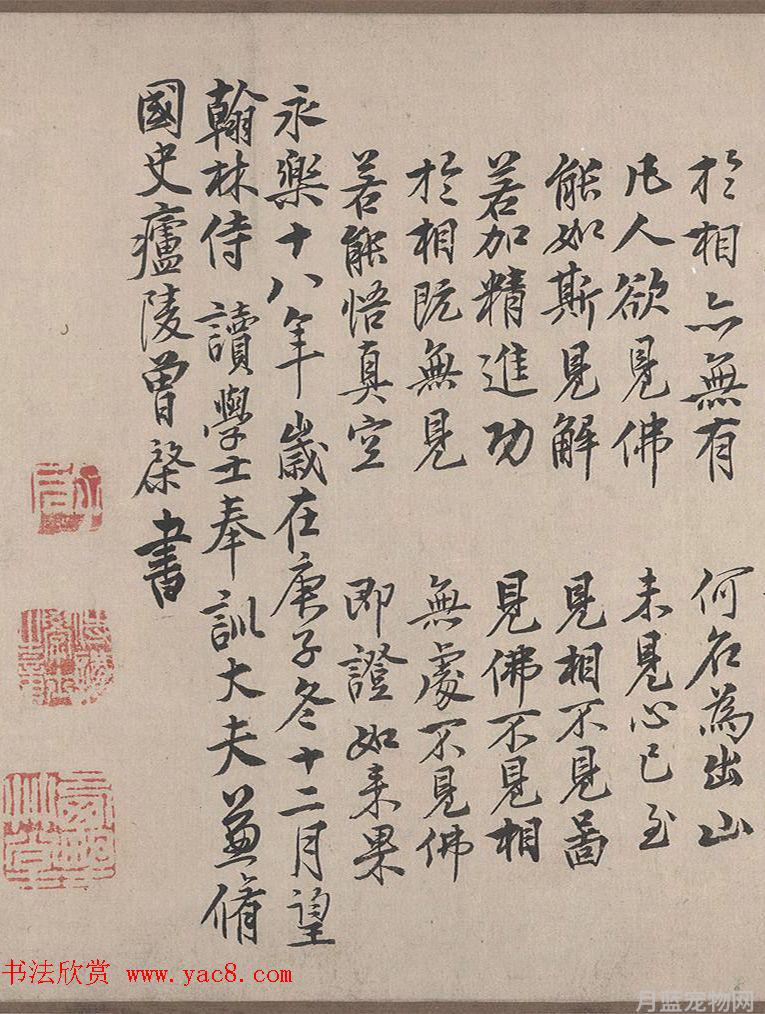 於相亦無有　何名為出山
凡人欲見佛　未見心已至
能如斯見解　見相不見啚
若加精進功　見佛不見相
於相既無見　無處不見佛
若能悟真空　即證如来果
永樂十八年歲在庚子冬十二月望
翰林侍讀學士奉訓大夫兼脩
國史廬陵曾棨書
书法欣赏 www.yac8.com
月蓝宠物网